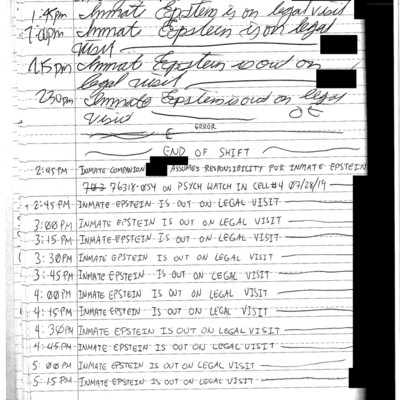 1:45pm Inmate Epstein is on legal visit
2:00pm Inmat Epstein is on legal
visit
2:15pm Inmate Epstein is out on
legal visit
2:30pm Inmate Epstein is out on legal
visit OE
E ERROR
END OF SHIFT
2:45PM INMATE COMPANION ASSUMES RESPONSIBILITY FOR INMATE EPSTEIN
76318-054 ON PSYCH WATCH IN CELL #4 07/28/19
2:45PM INMATE EPSTEIN IS OUT ON LEGAL VISIT
3:00PM INMATE EPSTEIN IS OUT ON LEGAL VISIT
3:15PM INMATE EPSTEIN IS OUT ON LEGAL VISIT
3:30PM INMATE EPSTEIN IS OUT ON LEGAL VISIT
3:45PM INMATE EPSTEIN IS OUT ON LEGAL VISIT
4:00PM INMATE EPSTEIN IS OUT ON LEGAL VISIT
4:15PM INMATE EPSTEIN IS OUT ON LEGAL VISIT
4:30PM INMATE EPSTEIN IS OUT ON LEGAL VISIT
4:45PM INMATE EPSTEIN IS OUT ON LEGAL VISIT
5:00PM INMATE EPSTEIN IS OUT ON LEGAL VISIT
5:15PM INMATE EPSTEIN IS OUT ON LEGAL VISIT